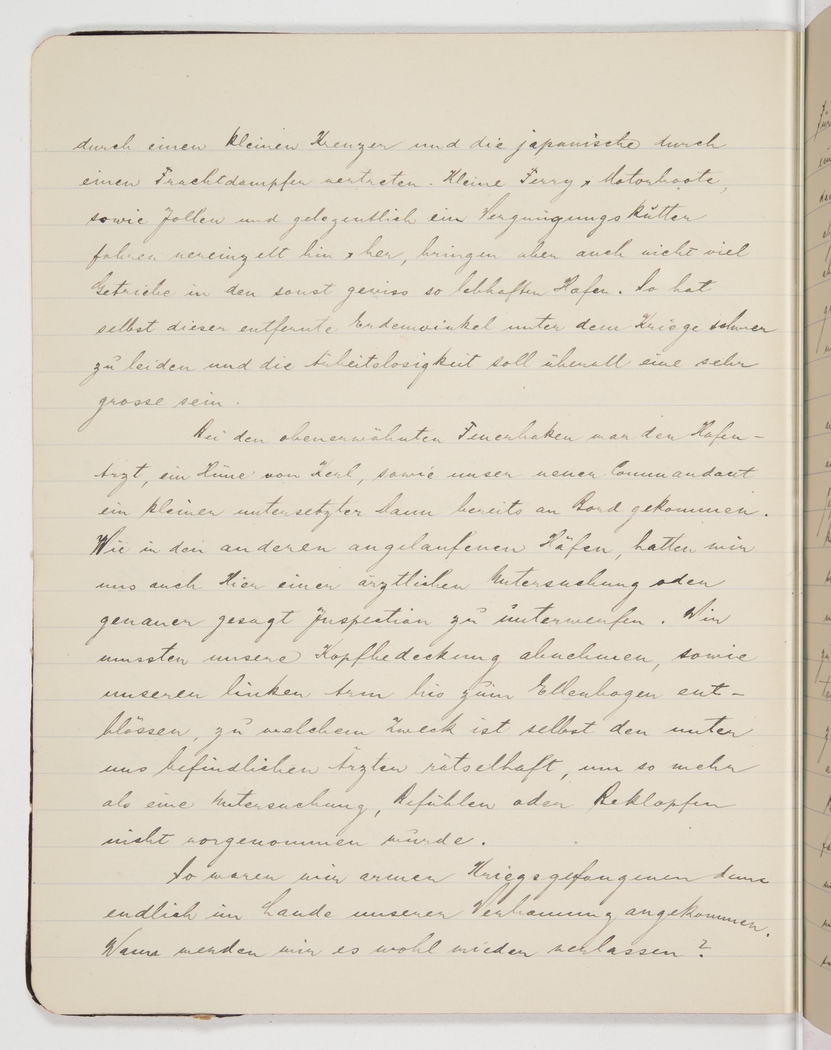 durch einen kleinen Kreuzer und die japanische durch
einen Frachtdampfer vertreten. Kleine Ferry & Motorboote,
sowie Jollen und gelegentlich ein Vergnügungskutter
fahren vereinzelt hin & her, bringen aber auch nicht viel
Getriebe in den sonst gewiss so lebhaften Hafen. So hat
selbst dieser entfernte Erdenwinkel unter dem Kriege schwer
zu leiden und die Arbeitslosigkeit soll überall eine sehr
grosse sein.
Bei den obenerwähnten Feuerbaken war der Hafen-
Arzt, ein Hüne von Kerl, sowie unser neuer Commandant
ein kleiner untersetzter Mann bereits an Bord gekommen.
Wie in den anderen angelaufenen Häfen, hatten wir
uns auch Hier einer ärztlichen Untersuchung oder
genauer gesagt Inspection zu unterwerfen. Wir
mussten unsere Kopfbedeckung abnehmen, sowie
unseren linken Arm bis zum Ellenbogen ent-
blössen, zu welchem Zweck ist selbst den unter
uns befindlichen Ärzten rätselhaft, um so mehr
als eine Untersuchung, Befühlen oder Beklopfen
nicht vorgenommen wurde.
So waren wir armen Kriegsgefangenen denn
endlich im Lande unserer Verbannung angekommen.
Wann werden wir es wohl wieder verlassen?